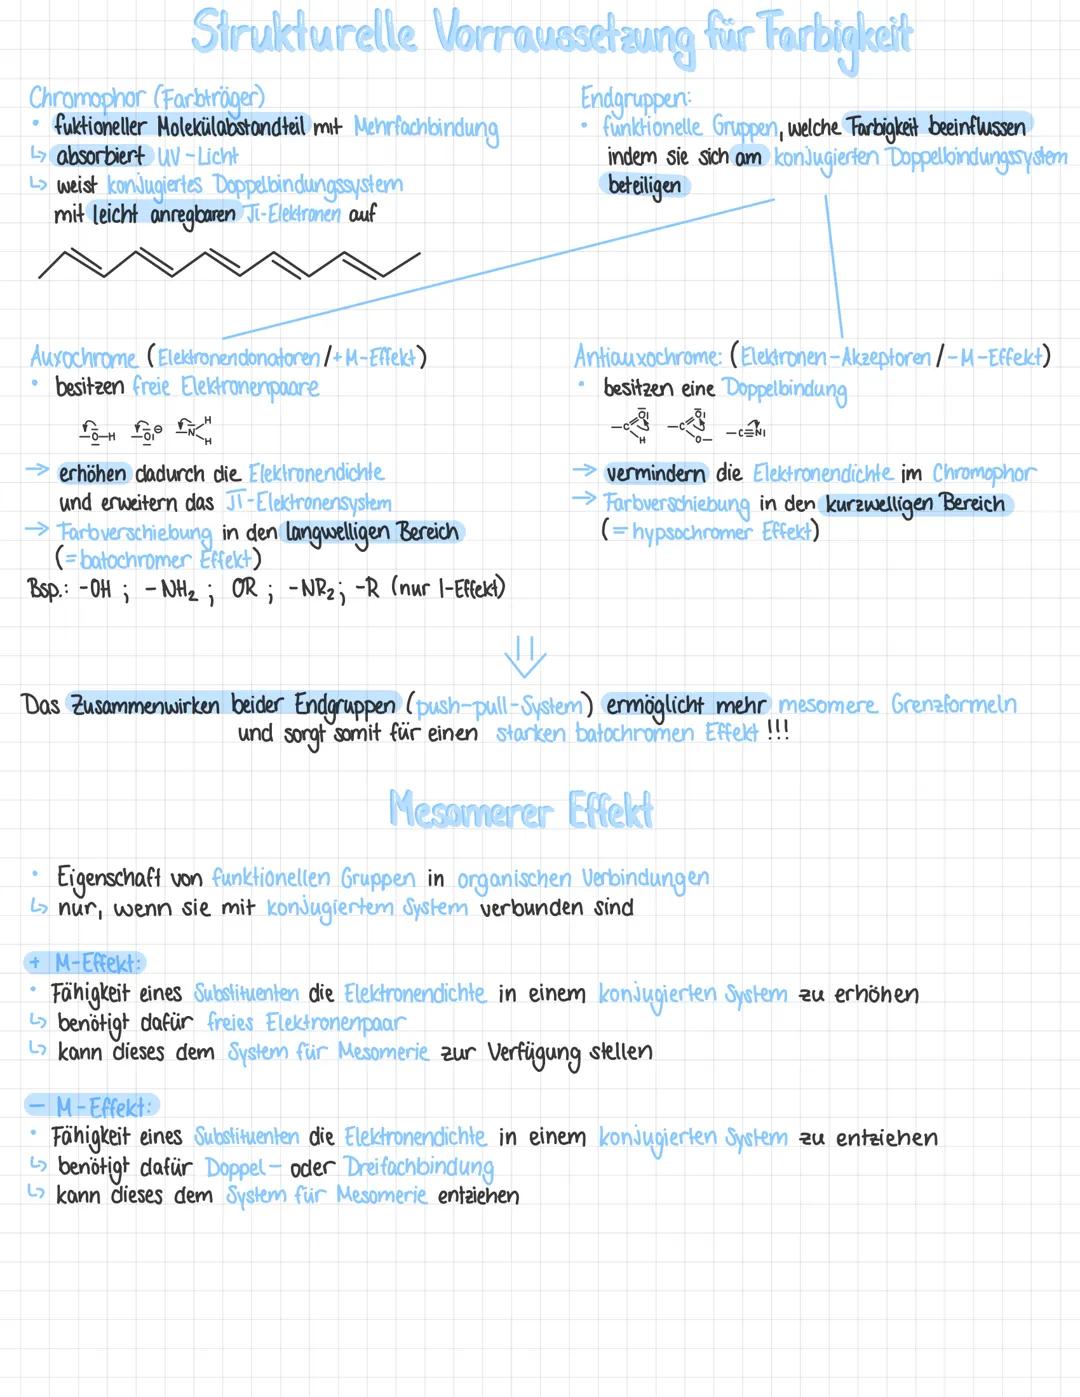 Strukturelle Vorraussetzung für Farbigkeit
Chromophor (Farbträger)
• fuktioneller Molekülabstandteil mit Mehrfachbindung
↳ absorbiert UV-Licht
↳ weist konjugiertes Doppelbindungssystem
mit leicht anregbaren π-Elektronen auf
Endgruppen:
• funktionelle Gruppen, welche Farbigkeit beeinflussen
indem sie sich am konjugierten Doppelbindungssystem
beteiligen
Auxochrome (Elektronendonatoren /+M-Effekt)
• besitzen freie Elektronenpaare
–O–H –O|⊖ –N H H
→ erhöhen dadurch die Elektronendichte
und erweitern das π-Elektronensystem
→ Farbverschiebung in den langwelligen Bereich
(=batochromer Effekt)
Bsp.: -OH ; -NH₂ ; OR ; -NR₂; -R (nur I-Effekt)
Antiauxochrome: (Elektronen-Akzeptoren /-M-Effekt)
• besitzen eine Doppelbindung
–C O| H –C O| O– –C≡N|
→ vermindern die Elektronendichte im Chromophor
→ Farbverschiebung in den kurzwelligen Bereich
(= hypsochromer Effekt)
⇓
Das Zusammenwirken beider Endgruppen (push-pull-System) ermöglicht mehr mesomere Grenzformeln
und sorgt somit für einen starken batochromen Effekt !!!
Mesomerer Effekt
• Eigenschaft von funktionellen Gruppen in organischen Verbindungen
↳ nur, wenn sie mit konjugiertem System verbunden sind
+ M-Effekt:
• Fähigkeit eines Substituenten die Elektronendichte in einem konjugierten System zu erhöhen
↳ benötigt dafür freies Elektronenpaar
↳ kann dieses dem System für Mesomerie zur Verfügung stellen
– M-Effekt:
• Fähigkeit eines Substituenten die Elektronendichte in einem konjugierten System zu entziehen
↳ benötigt dafür Doppel- oder Dreifachbindung
↳ kann dieses dem System für Mesomerie entziehen